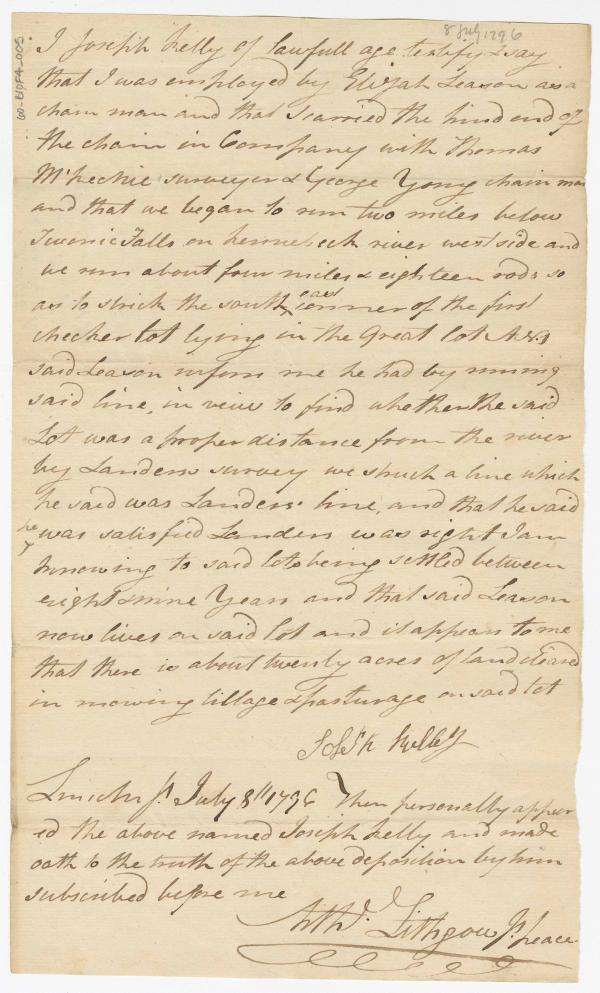 8 July 1796
I Joseph Kelly of lawfull age testify & say
that I was employed by Elijah Leason as a
chain man and that I carried the hind end of
the chain in Company with Thomas
McKechnie surveyor & George Yong chain man
and that we began to run two miles below
Tuconic Falls on kennebeck river west side and
we run about four miles & eighteen rods so
as to strick the south east conner of the first
checker lot lying in the Great lot
said Leason inform me he had by runing
said line, in veiw to find whether the said
Lot was a proper distance from the river
by Landers survey we struck a line which
he said was Landers line, and that he said
he was satisfied Landers was right I am
knowing to said lots being settled between
eight & nine Years and that said Leason
now lives on said lot and it appears to me
that there is about twenty acres of land cleared
in mowing tillage & pasturage on said lot
Joseph Kelly
Lincoln ss. July 8th 1796 Then personally appear
ed the above named Joseph Kelly and made
oath to the truth of the above deposition by him
subscribed before me
Arthr. Lithgow Js. peace